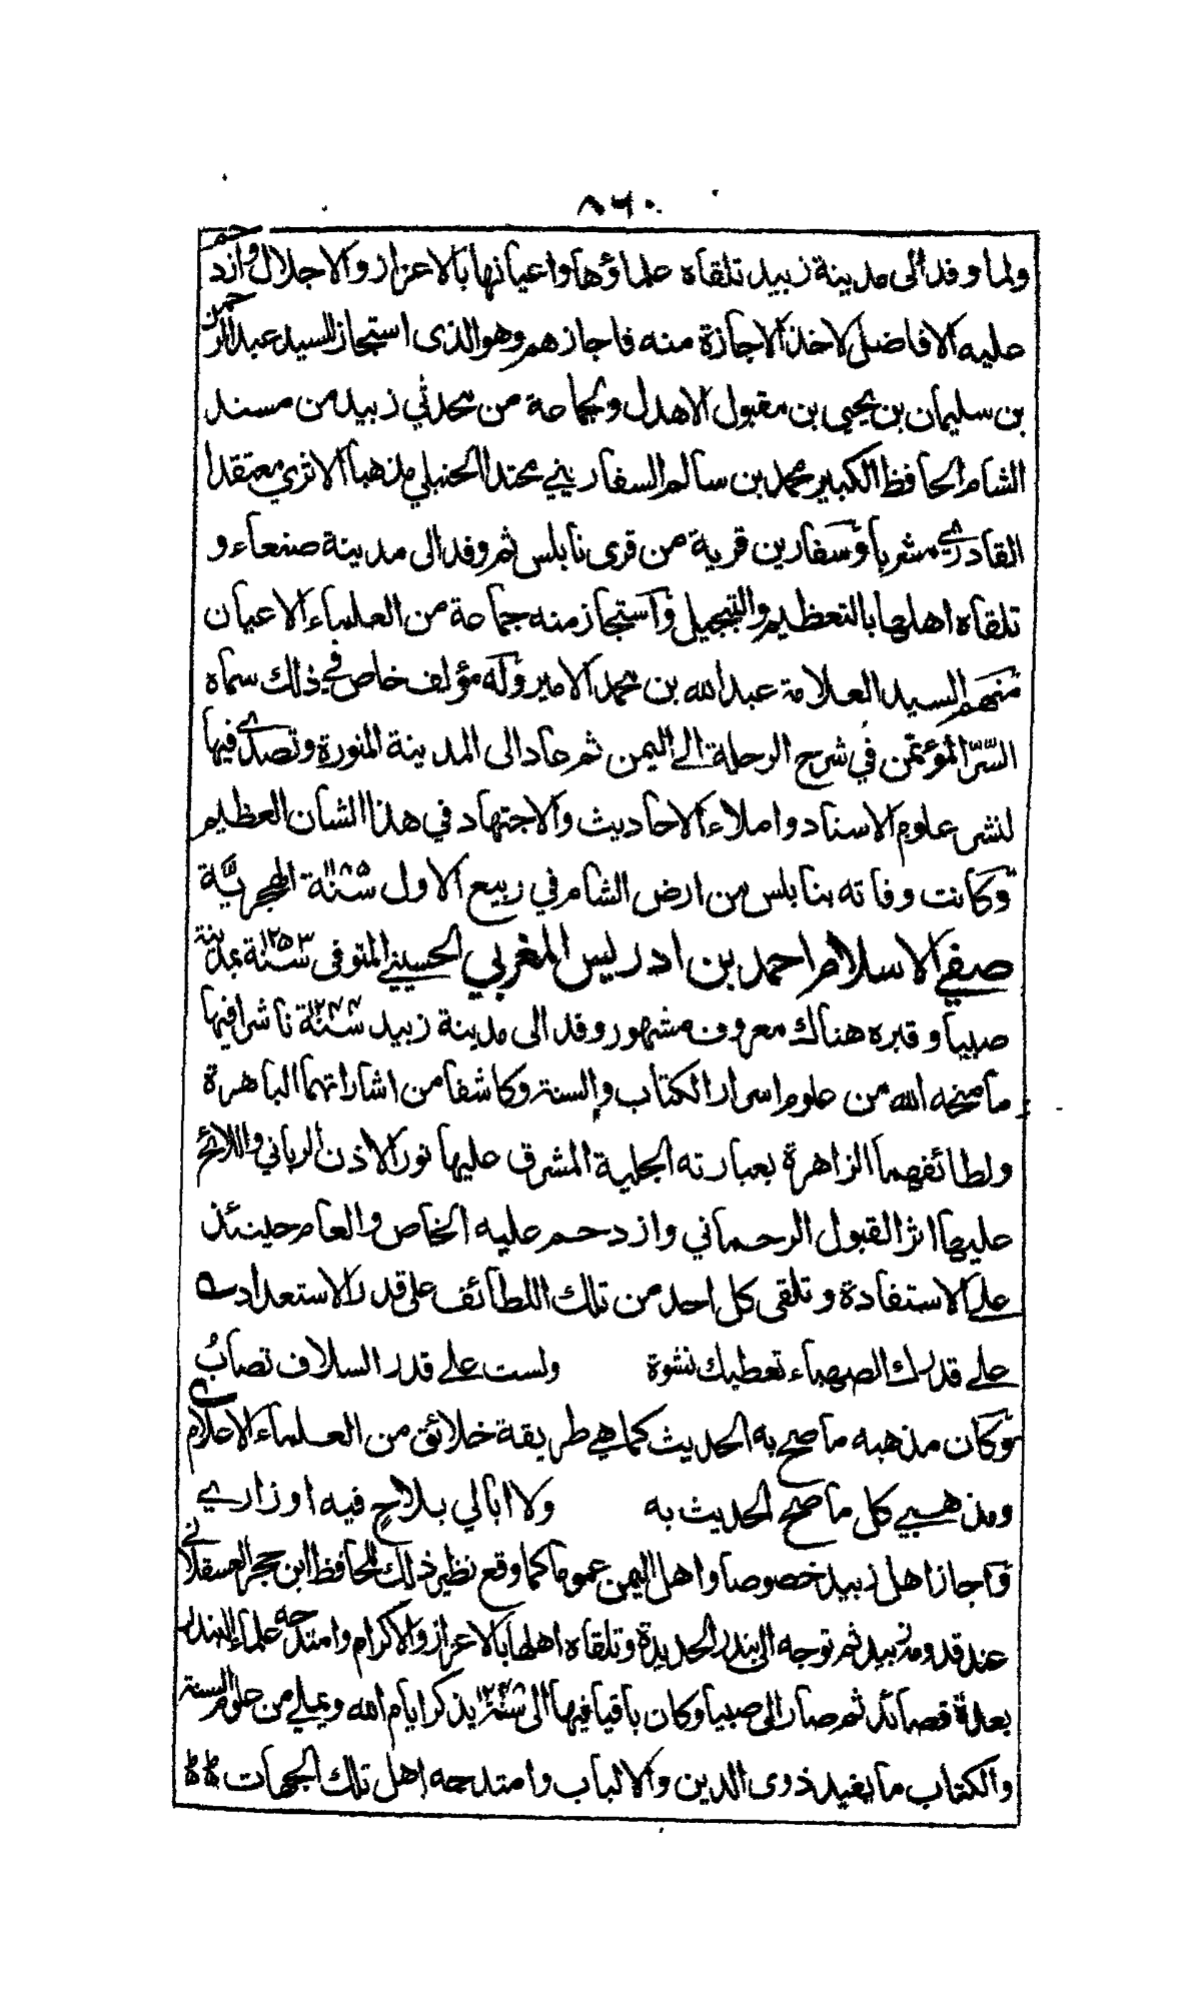 ٨٦٠
ولما وفد الى مدينة زبيد تلقاه علماؤها واعيانها بالاعزاز والاجلال وازدحم
عليه الافاضل لاخذ الاجازة منه فاجازهم وهو الذى استجاز للسيد عبد الرحمن
بن سليمان بن يحيى بن مقبول الاهدل ولجماعة من محدثي زبيد من مسند
الشام الحافظ الكبير محمد بن سالم السفاريني محتدا الحنبلي مذهبا الاثري معتقدا
القادري مشربا وسفارين قرية من قرى نابلس ثم وفد الى مدينة صنعاء و
تلقاه اهلها بالتعظيم والتبجيل واستجاز منه جماعة من العلماء الاعيان
منهم السيد العلامة عبد الله بن محمد الامير وله مؤلف خاص في ذلك سماه
السّرّ المؤتمن في شرح الرحلة الى اليمن ثم عاد الى المدينة المنورة وتصدى فيها
لنشر علوم الاسناد واملاء الاحاديث والاجتهاد في هذا الشان العظيم
وكانت وفاته بنابلس من ارض الشام في ربيع الاول سنة ١١٨٥ الهجريّة
صفي الاسلام احمد بن ادريس المغربي الحسيني المتوفى سنة ١٢٥٣ بمدينة
صبيا وقبره هناك معروف مشهور وفد الى مدينة زبيد سنة ١٢٤٤ ناشرا فيها
ما منحه الله من علوم اسرار الكتاب والسنة وكاشفا من اشاراتهما الباهرة
ولطائفهما الزاهرة بعبارته الجلية المشرق عليها نور الاذن الرباني واللائح
عليها اثر القبول الرحماني وازدحم عليه الخاص والعام حينئذ
على الاستفادة وتلقى كل احد من تلك اللطائف على قدر الاستعداد ـه
على قدرك الصهباء تعطيك نشوة ولست على قدر السلاف تصابُ
وكان مذهبه ما صح به الحديث كما هي طريقة خلائق من العلماء الاعلام ـه
ومذهبي كل ما صح الحديث به ولا ابالي بلاحٍ فيه او زاري
فاجاز اهل زبيد خصوصا واهل اليمن عموما كما وقع نظير ذلك للحافظ ابن حجر العسقلاني
عند قدومه زبيد ثم توجه الى بندر الحديدة وتلقاه اهلها بالاعزاز والاكرام وامتدحه علماء البندر
بعدة قصائد ثم صار الى صبيا وكان باقيا فيها الى سنة يذكر ايام الله ويملي من علوم السنة
والكتاب ما يفيد ذوى الدين والالباب وامتدحه اهل تلك الجهات